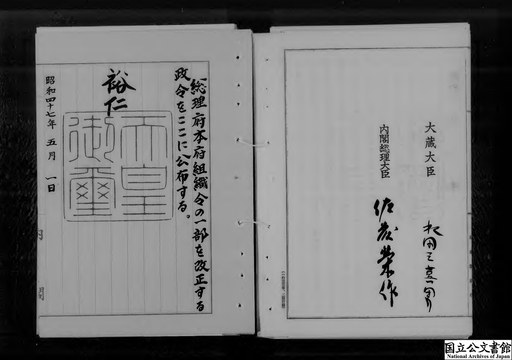 大蔵大臣
水田三喜男
内閣総理大臣
佐藤榮作
総理府本府組織令の一部を改正する
政令をここに公布する。
裕仁
天皇
御璽
昭和四十七年五月一日
国立公文書館
National Archives of Japan